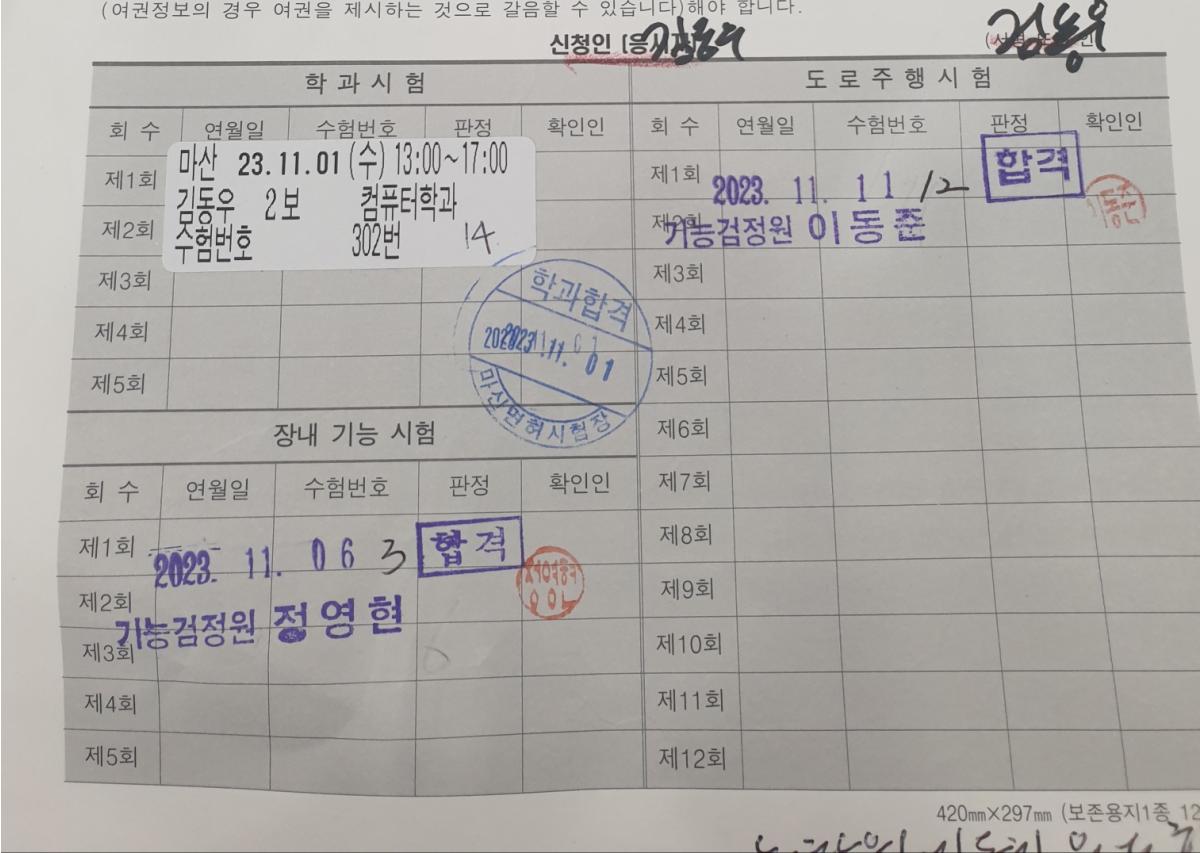 (여권정보의 경우 여권을 제시하는 것으로 갈음할 수 있습니다)해야 합니다.
신청인 김동우 김동우
학과시험
회 수 연월일 수험번호 판정 확인인
제1회
제2회
제3회
제4회
제5회
마산 23.11.01 (수) 13:00~17:00
김동우 2보 컴퓨터학과
수험번호 302번 14
학과합격
2023.11.01
마산면허시험장
장내 기능 시험
회 수 연월일 수험번호 판정 확인인
제1회 2023. 11. 06 3 합격
제2회
기능검정원 정영현
제3회
제4회
제5회
도로주행시험
회 수 연월일 수험번호 판정 확인인
제1회 2023. 11. 11 12 합격
제2회
기능검정원 이동준
제3회
제4회
제5회
제6회
제7회
제8회
제9회
제10회
제11회
제12회
420mm×297mm (보존용지1종 12